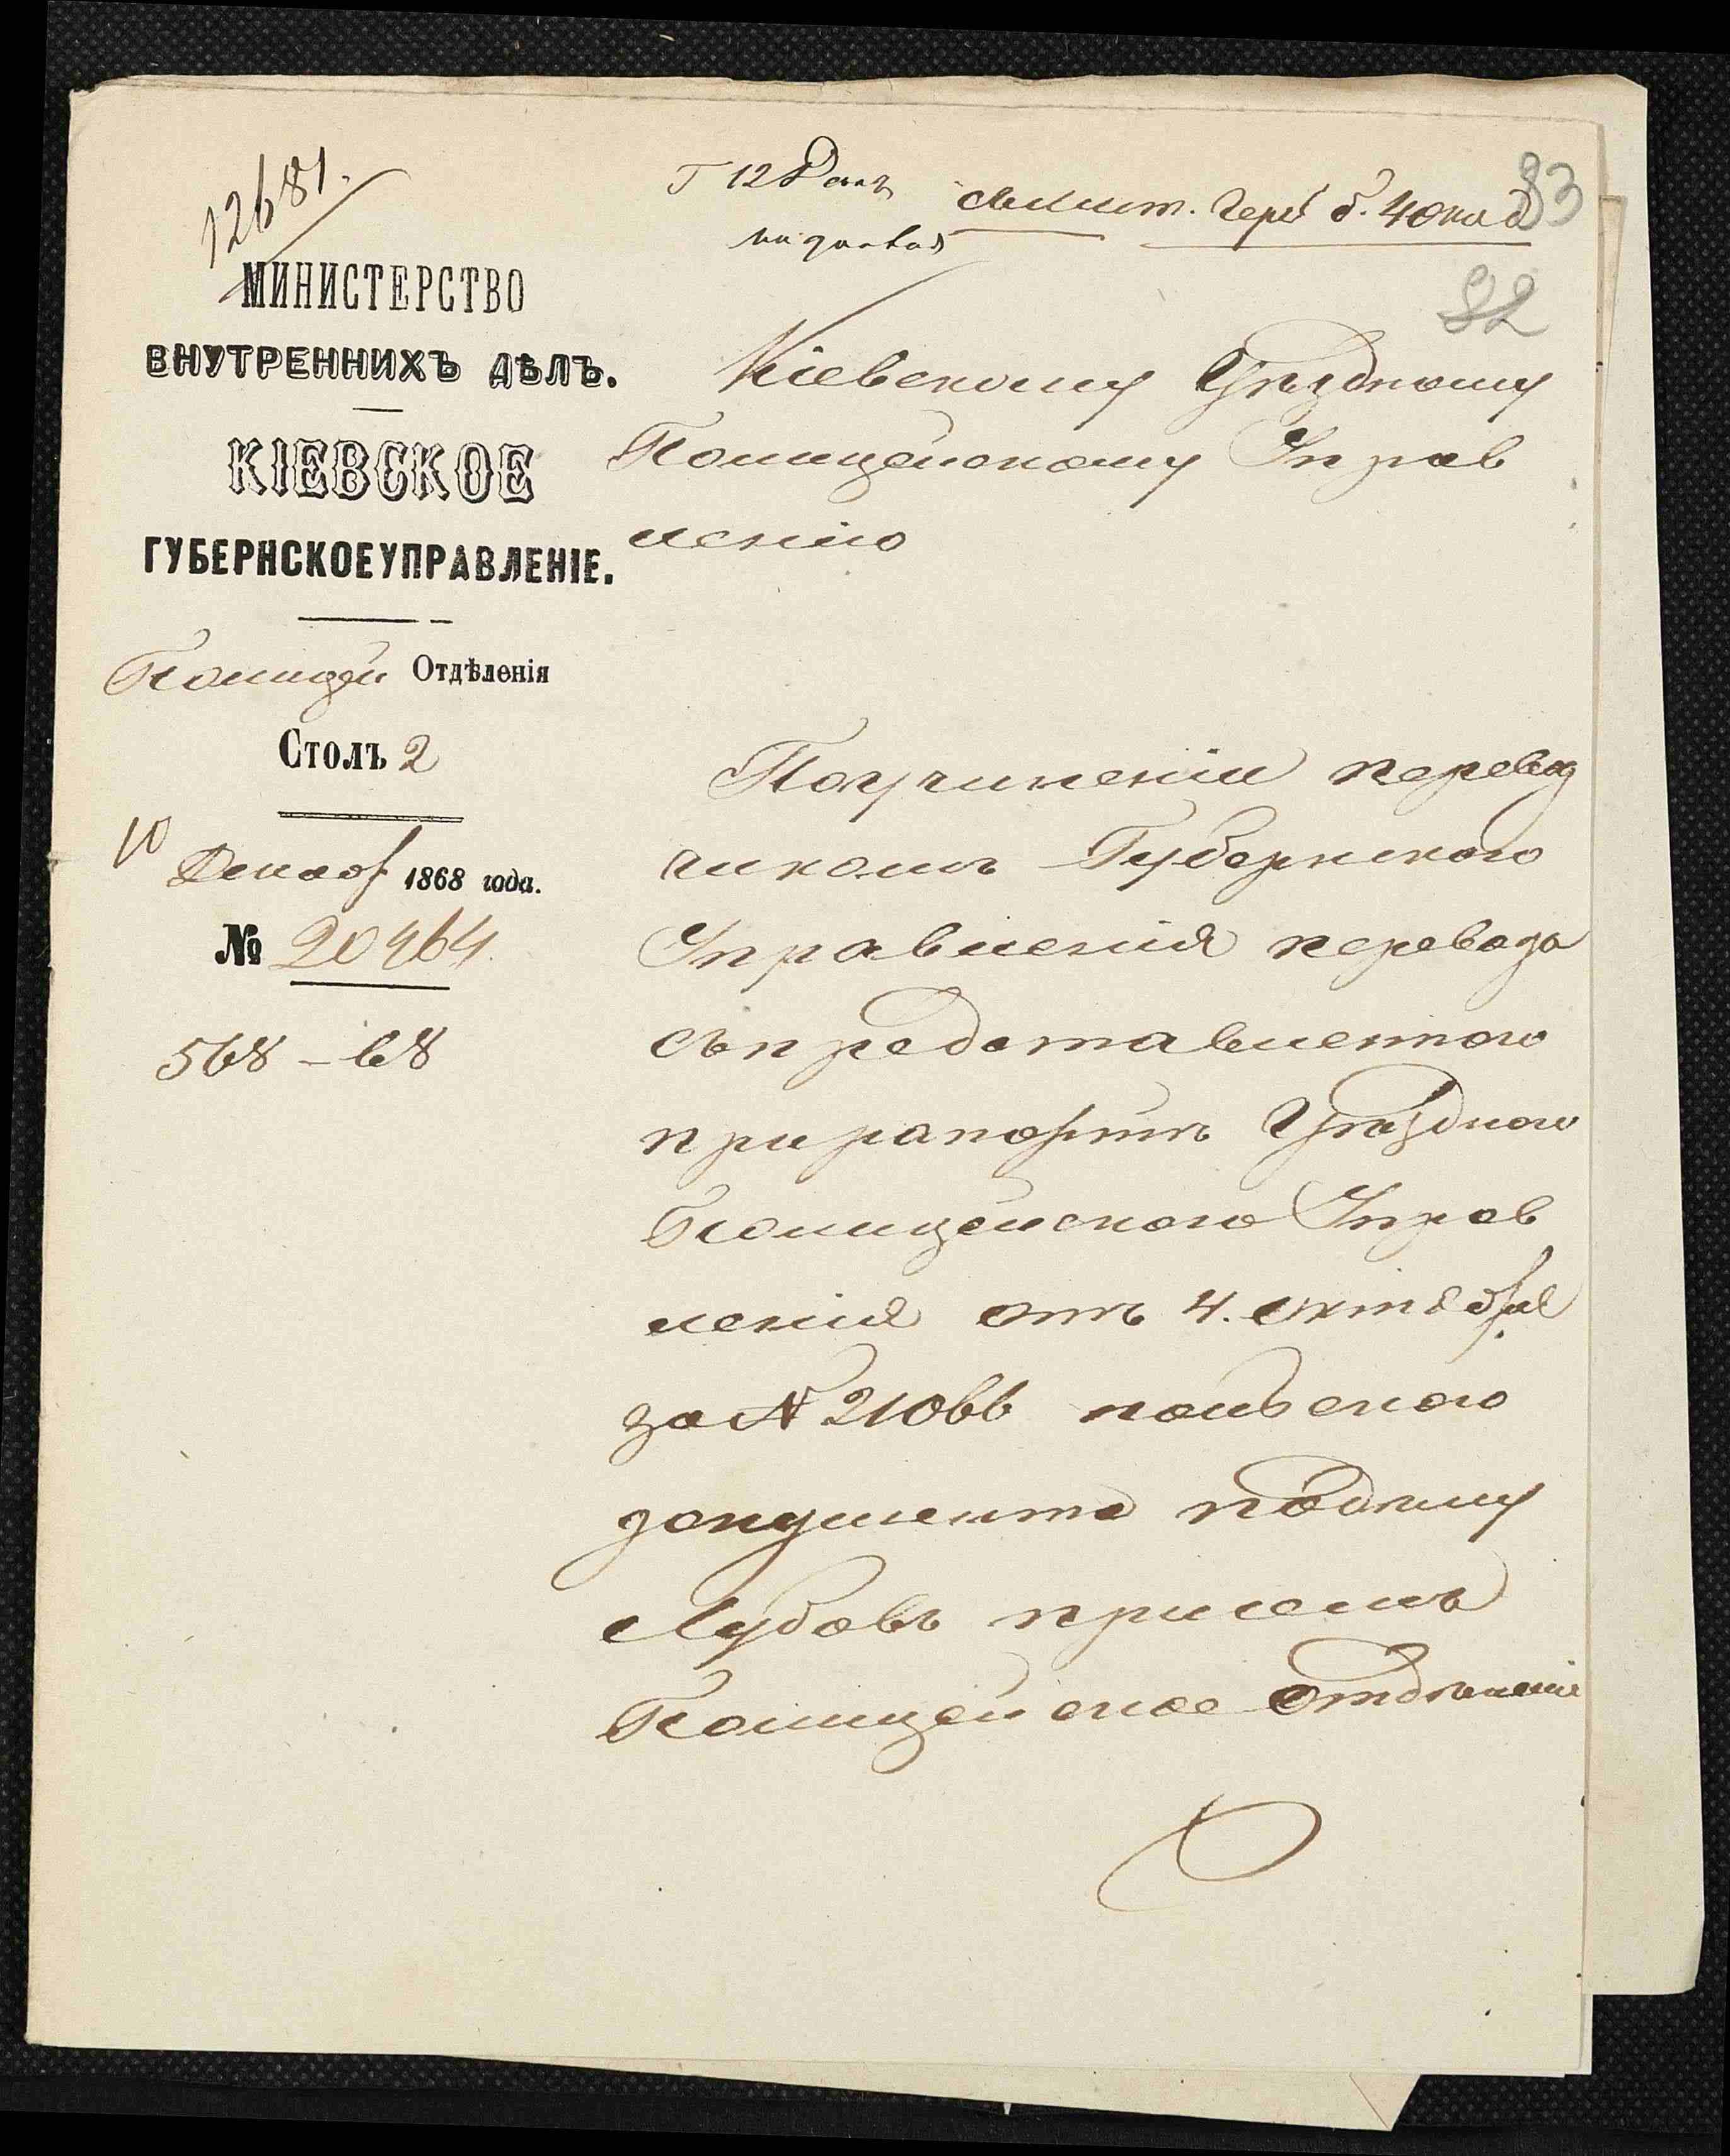 12681.
83
82
МИНИСТЕРСТВО
ВНУТРЕННИХЪ ДѢЛЪ.
КІЕВСКОЕ
ГУБЕРНСКОЕ УПРАВЛЕНІЕ.
Полицей Отдѣленія
Столъ 2
10 Декабр 1868 года.
№ 20464.
568–68
Кіевскому Уѣздному
Полицейскому Управ
ленію
По учиненіи перевод
чикомъ Губернского
Управленія перевода
съ представленного
при рапортѣ Уѣздного
Полицейского Управ
ленія отъ 4. октября
за № 21066 польского
документа
при семъ
Полицейское Отдѣленіе